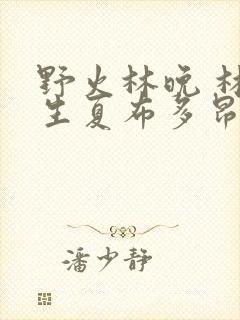 野火林晚 林
生夏布多昂
潘少静